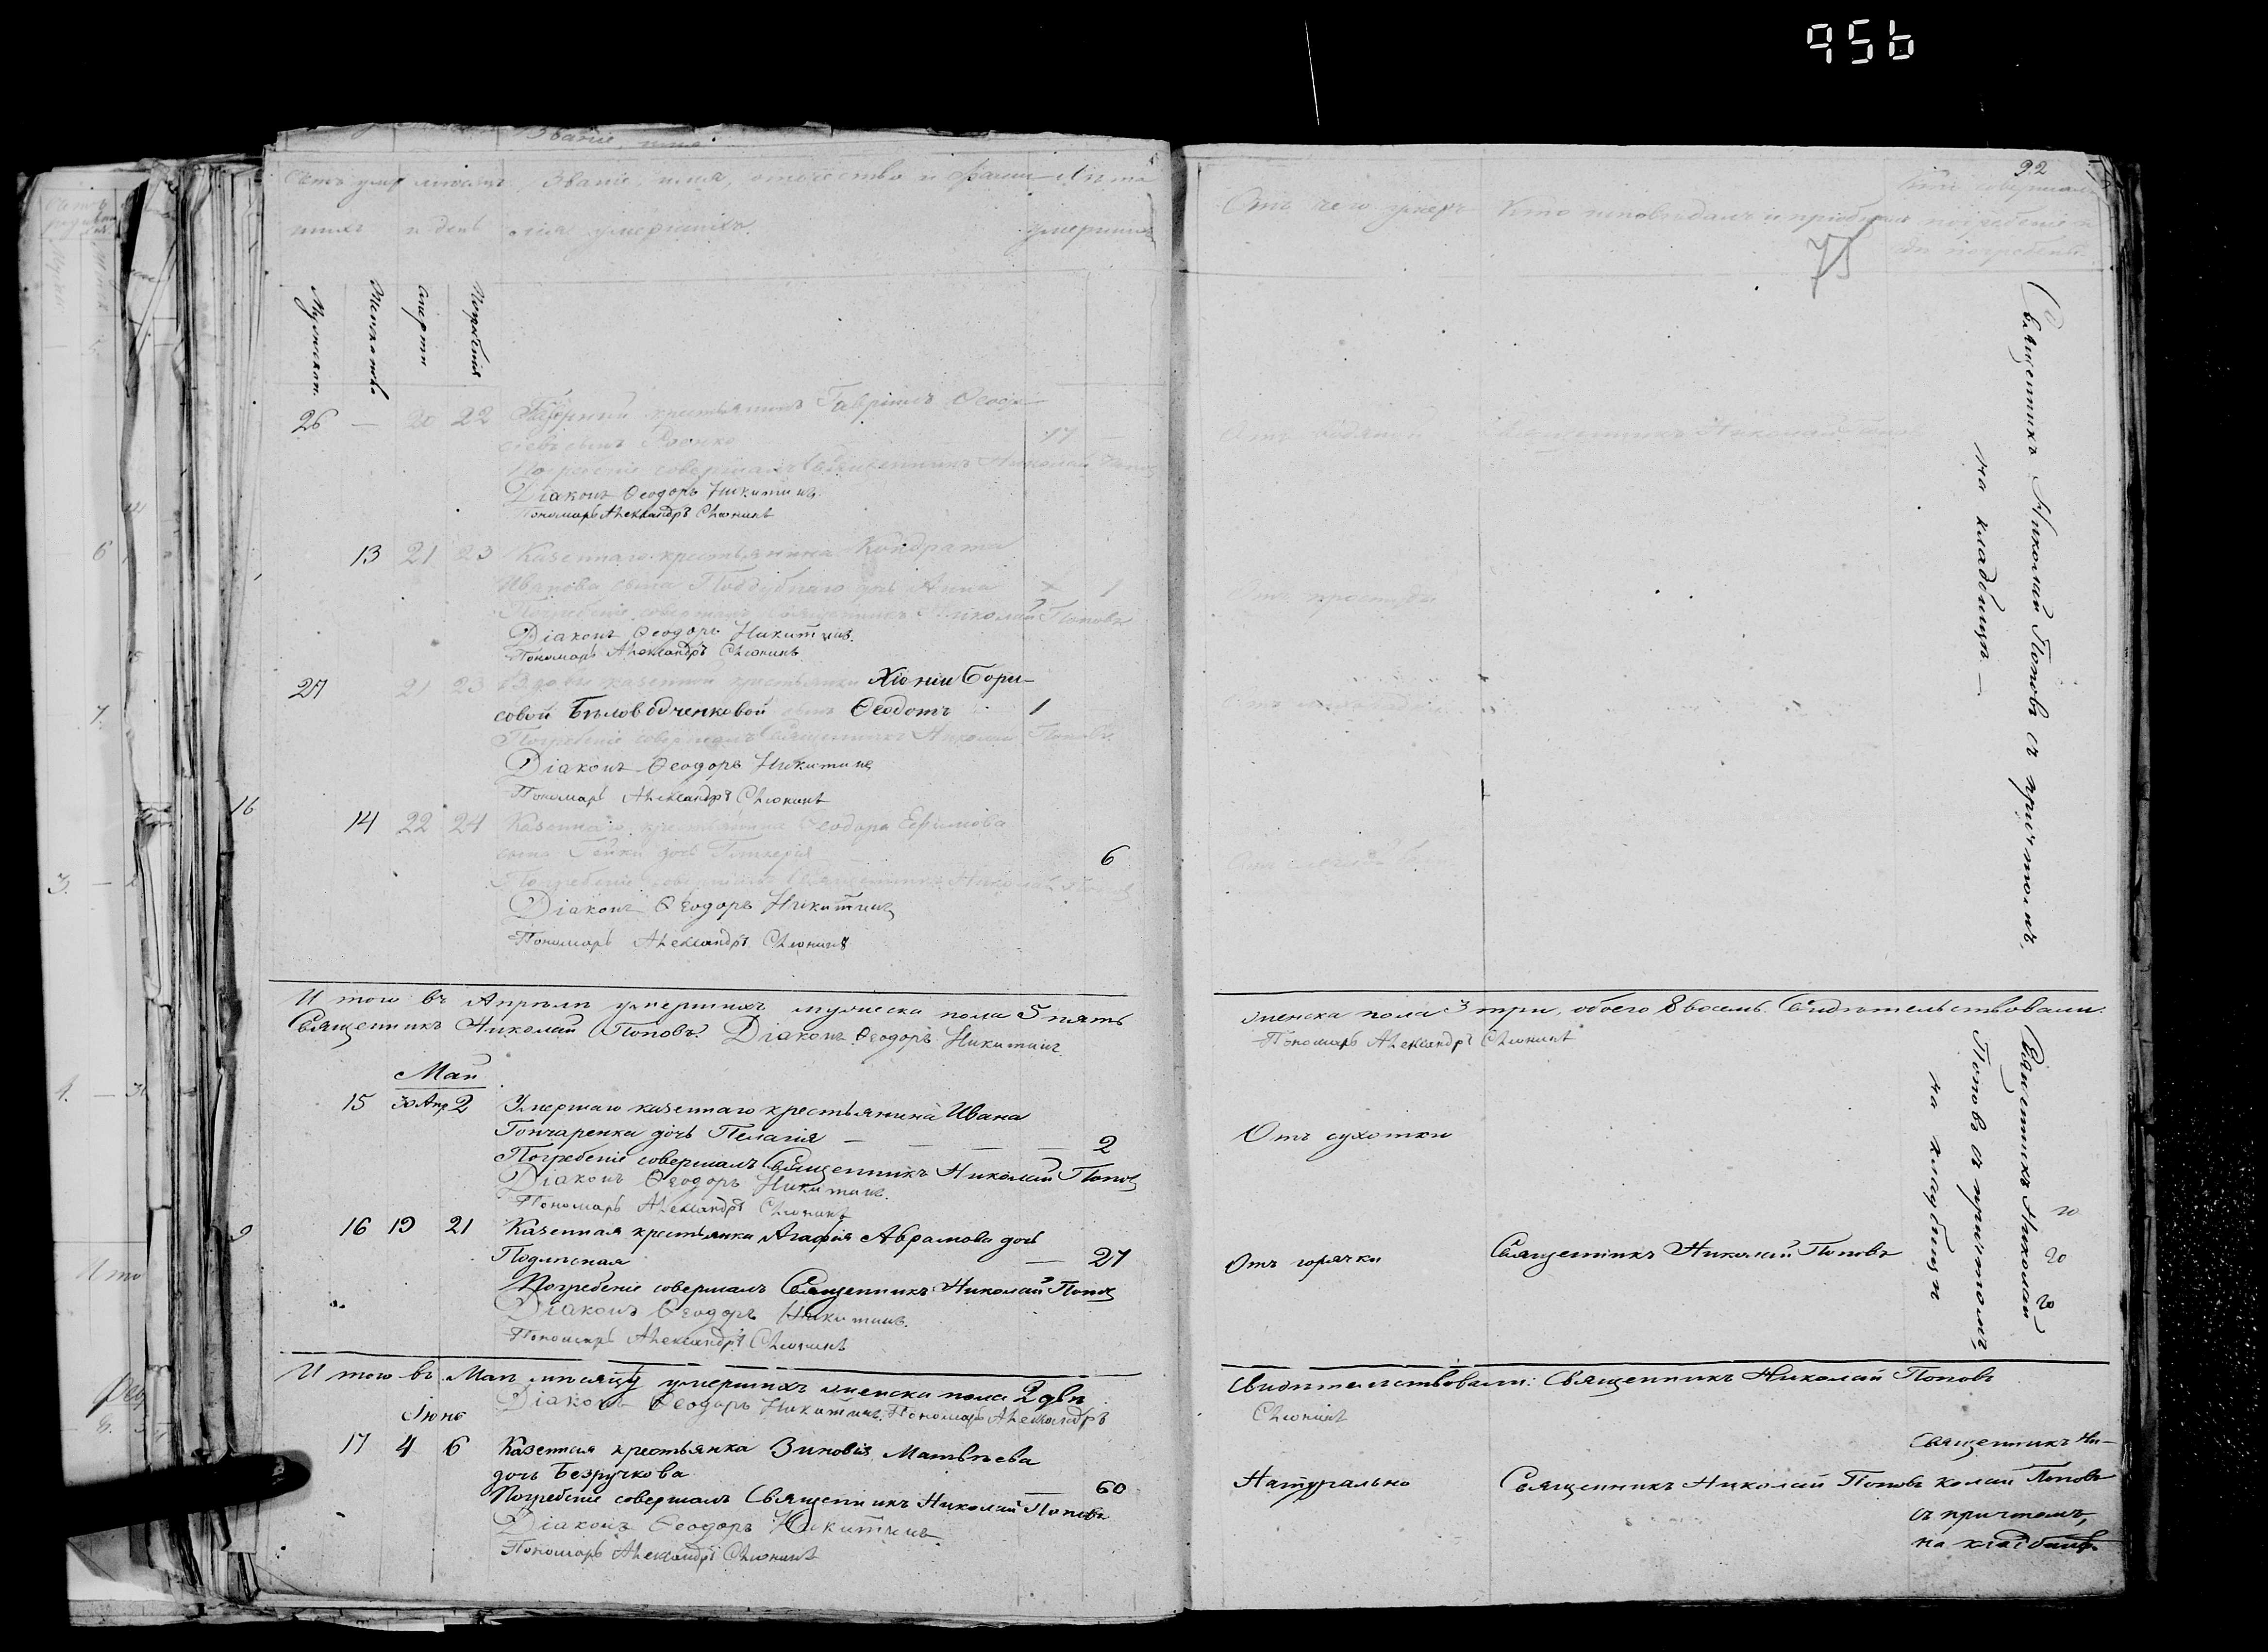 956
92
75
Званіе, имя
Счетъ умер Званіе, имя, отчество и фами Лѣта
шихъ и день лія умершихъ. умершихъ
Мужескаго
Женскаго
Смерти
Погребенія
Отъ чего умеръ Кто исповѣдалъ и пріобщалъ
Кто совершалъ
погребеніе и
гдѣ погребены
26 — 20 22 крестьянинъ Гавріилъ Ѳеодо-
сынъ
Погребеніе совершалъ Священникъ Николай Попов
Діаконъ Ѳеодоръ Никитинъ.
Пономарь Александръ Слюнинъ
Священникъ Николай
13 21 23 Казеннаго крестьянина Кондрата
Иванова сына Поддубнаго дочь Анна 1
Погребеніе совершалъ Священникъ Николай Поповъ
Діаконъ Ѳеодоръ Никитинъ.
Пономарь Александръ Слюнинъ
Отъ простуды
27 21 23 Вдовы казенной крестьянки Хіоніи Бори-
совой Бѣловодченковой сынъ Ѳеодотъ 1
Погребеніе совершалъ Священникъ Николай Поповъ.
Діаконъ Ѳеодоръ Никитинъ
Пономарь Александръ Слюнинъ
14 22 24 Казеннаго крестьянина Ѳеодора Ефимова
сына дочь Гликерія 6
Погребеніе совершалъ Священникъ Николай Попов
Діаконъ Ѳеодоръ Никитинъ
Пономарь Александръ Слюнинъ
Священникъ Николай Поповъ съ причтомъ,
на кладбищѣ —
Итого въ Апрѣлѣ умершихъ мужеска пола 5 пять
женска пола 3 три, обоего 8 восемь. Свидѣтельствовали:
Священникъ Николай Поповъ. Діаконъ Ѳеодоръ Никитинъ.
Пономарь Александръ Слюнинъ
Май
15 30 Апр 2 Умершаго казеннаго крестьянина Ивана
Гончаренка дочь Пелагія — — — 2
Погребеніе совершалъ Священникъ Николай Попов
Діаконъ Ѳеодоръ Никитинъ.
Пономарь Александръ Слюнинъ
Отъ сухотки
16 19 21 Казенная крестьянка Агафія Аврамова дочь
— 27
Погребеніе совершалъ Священникъ Николай Попов
Діаконъ Ѳеодоръ Никитинъ.
Пономарь Александръ Слюнинъ
Отъ горячки Священникъ Николай Поповъ
Священникъ Николай
Поповъ съ причтомъ
на кладбищѣ
Итого въ Маѣ мѣсяцѣ умершихъ женска пола 2 двѣ
Свидѣтельствовали: Священникъ Николай Поповъ
Діаконъ Ѳеодоръ Никитинъ. Пономарь Александръ
Слюнинъ
Іюнь
17 4 6 Казенная крестьянка Зиновія Матвѣева
дочь Безручкова — 60
Погребеніе совершалъ Священникъ Николай Поповъ
Діаконъ Ѳеодоръ Никитинъ
Пономарь Александръ Слюнинъ
Натурально Священникъ Николай Поповъ
Священникъ Ни-
колай Поповъ
съ причтомъ,
на кладбищѣ.